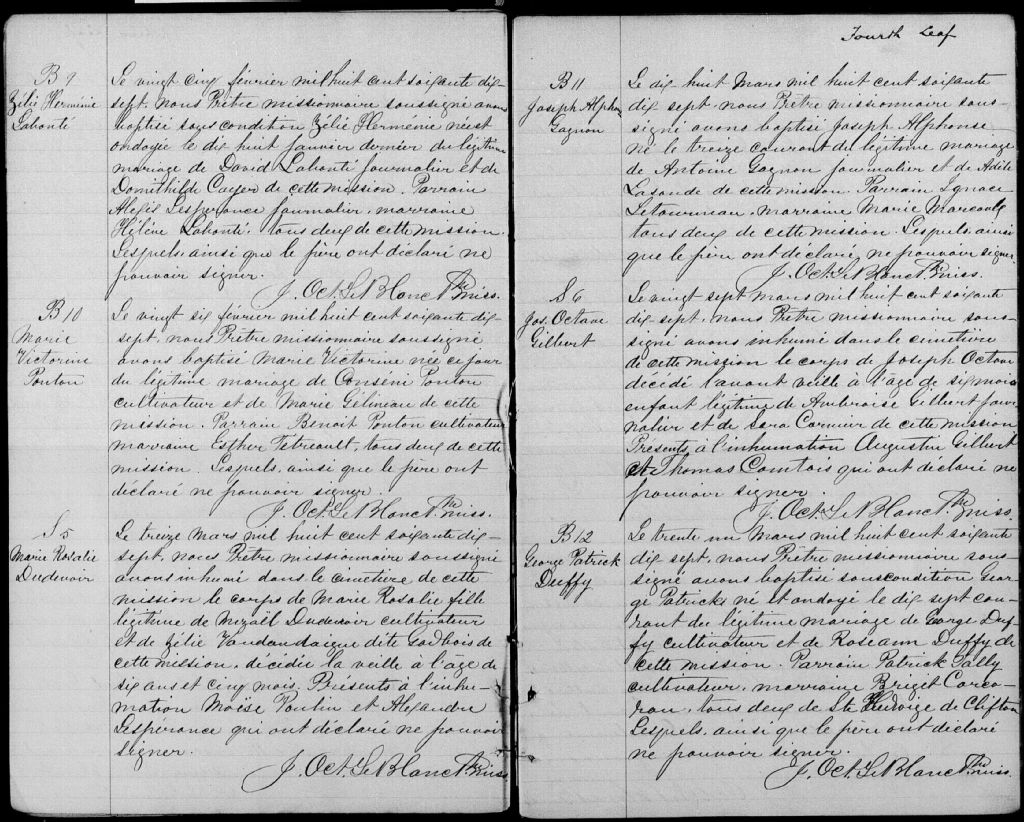 B 9
Zélie Herménie
Labonté
Le vingt cinq février mil huit cent soixante dix-
sept, nous Prêtre missionnaire soussigné avons
baptisé sous condition Zélie Herménie née et
ondoyée le dix huit janvier dernier du légitime
mariage de David Labonté journalier et de
Domethilde Cayer de cette mission. Parrain
Alexis Lespérance journalier, marraine
Hélène Labonté, tous deux de cette mission.
Lesquels ainsi que le père ont déclaré ne
pouvoir signer.
J. Oct. LeBlanc Ptre miss.
B 10
Marie
Victorine
Ponton
Le vingt six février mil huit cent soixante dix-
sept, nous Prêtre missionnaire soussigné
avons baptisé Marie Victorine née ce jour
du légitime mariage de Ponton
cultivateur et de Marie Gélineau de cette
mission. Parrain Benoit Ponton cultivateur
marraine Esther Tétreault, tous deux de cette
mission. Lesquels, ainsi que le père ont
déclaré ne pouvoir signer.
J. Oct. LeBlanc Ptre miss.
S 5
Marie Rosalie
Dudevoir
Le treize mars mil huit cent soixante dix-
sept, nous Prêtre missionnaire soussigné
avons inhumé dans le cimetière de cette
mission le corps de Marie Rosalie fille
légitime de Mizaël Dudevoir cultivateur
et de Zélie Vandandaigue dite Gadbois de
cette mission, décédée la veille à l'age de
six ans et cinq mois. Présents à l'inhu-
mation Moïse Poulin et Alexandre
Lespérance qui ont déclaré ne pouvoir
signer.
J. Oct. LeBlanc Ptre miss.
Fourth Leaf
B 11
Joseph Alphon
Gagnon
Le dix huit Mars mil huit cent soixante
dix sept, nous Prêtre missionnaire sous-
signé avons baptisé Joseph Alphonse
né le treize courant du légitime mariage
de Antoine Gagnon journalier et de Adèle
Lasonde de cette mission. Parrain Ignace
Letourneau, marraine Marie Marcoulx
tous deux de cette mission. Lesquels, ainsi
que le père ont déclaré ne pouvoir signer.
J. Oct. LeBlanc Ptre miss.
S 6
Jos. Octave
Gilbert
Le vingt sept mars mil huit cent soixante
dix-sept, nous Prêtre missionnaire sous-
signé avons inhumé dans le cimetière
de cette mission le corps de Joseph Octave
décédé l'avant veille à l'âge de six mois
enfant légitime de Ambroise Gilbert jour-
nalier et de Sara Cormier de cette mission
Présents à l'inhumation Augustin Gilbert
et Thomas Comtois qui ont déclaré ne
pouvoir signer.
J. Oct. LeBlanc Ptre miss.
B 12
George Patrick
Duffy
Le trente un Mars mil huit cent soixante
dix sept, nous Prêtre missionnaire sous-
signé avons baptisé sous condition Geor-
ge Patrick né et ondoyé le dix sept cou-
rant du légitime mariage de George Duf-
fy cultivateur et de Roseann Duffy de
cette mission. Parrain Patrick Tally
cultivateur, marraine Briget Corco-
ran, tous deux de Ste Hedwige de Clifton
Lesquels, ainsi que le père ont déclaré
ne pouvoir signer.
J. Oct. LeBlanc Ptre miss.